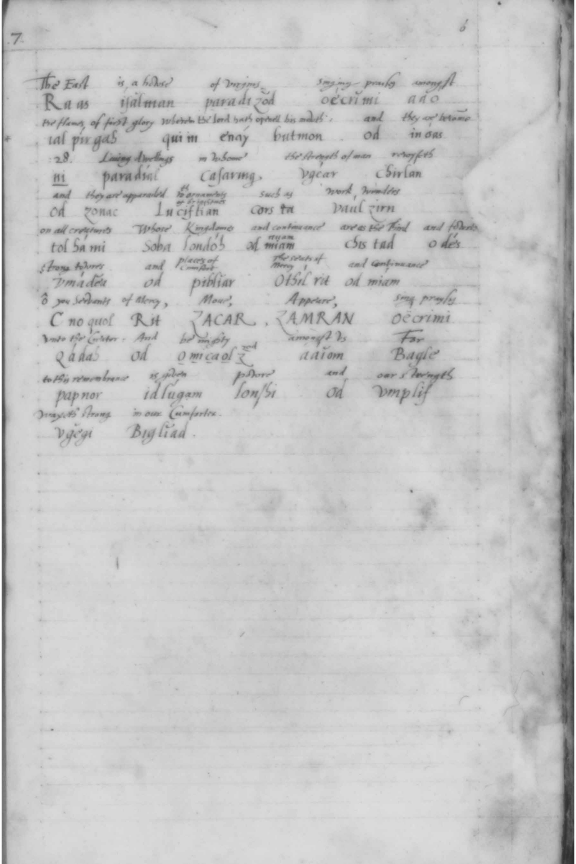 7. 6
The East is a howse of virgins singing prayses amongst
Ra as isalman paradizod oecrimi aao
the flames of first glory wherein the lord hath opened his mouth: and they are become
ial pirgah qui in enay butmon od in oas
28. Living dwellings in whome the strength of man reioyseth
ni paradial casarmg, vgear chirlan
and they are apparailed with ornaments of brightnes such as work wonders
od zonac Luciftian cors ta vaul zirn
on all creatures Whose Kingdoms and continuance are as the third and fowrth
tol ha mi Soba londoh od miam chis tad o des
strong towres and places of comfort The seate of Mercy and continuance
Vmadea od pibliar Othil rit od miam
o you servants of Mercy, Move, Appeare, sing prayses
C no quol Rit ZACAR, ZAMRAN oecrimi
vnto the Creator. And be mighty amongst vs For
Qadah od omicaolz aaiom Bagle
to this remembrance is given powre and our strength
papnor idlugam lonshi od vmplif
waxeth strong in our Cumforter.
vgegi Bigliad.